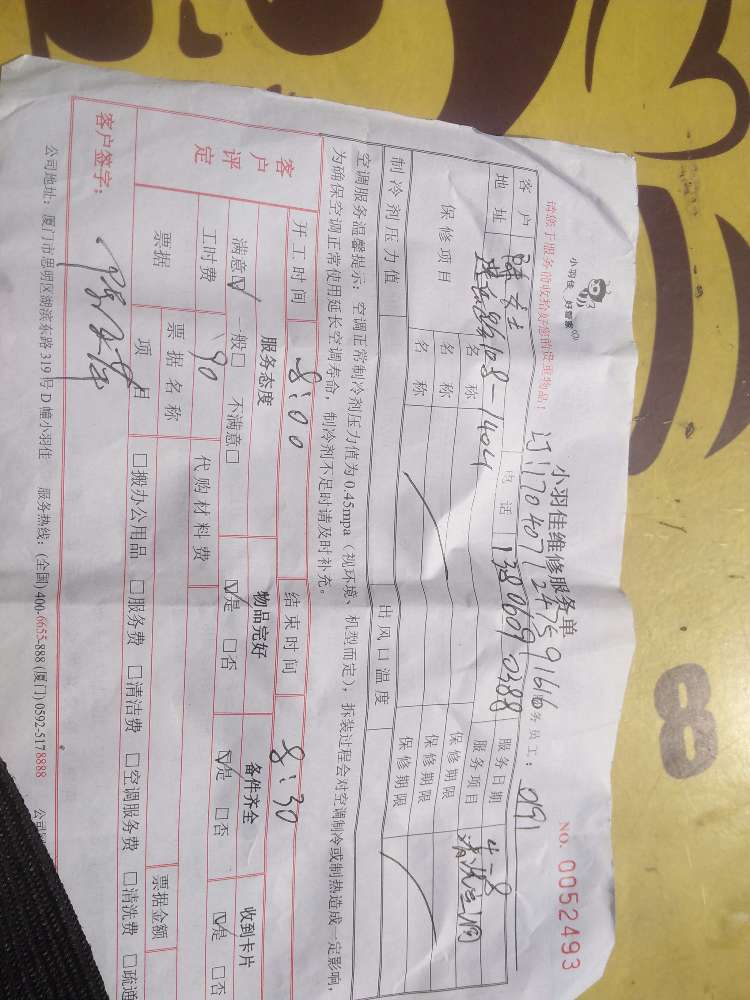 小羽佳 好管家
小羽佳维修服务单
NO. 0052493
请您于服务前收拾好您的贵重物品!
服务员工: 0191
客户
电话 13806090388
服务日期
地址 1404
服务项目 清洗空调
保修项目 名称 保修期限
名称 保修期限
名称 保修期限
制冷剂压力值 出风口温度
空调服务温馨提示: 空调正常制冷剂压力值为0.45mpa(视环境、机型而定),拆装过程会对空调制冷或制热造成一定影响,
为确保空调正常使用延长空调寿命,制冷剂不足时请及时补充。
开工时间 8:00 结束时间 8:30
客户评定 服务态度 物品完好 备件齐全 收到卡片
满意☑ 一般□ 不满意□ ☑是 □否 ☑是 □否 ☑是 □否
工时费 90 代购材料费
票据 票据名称 票据金额
项目 □搬办公用品 □服务费 □清洁费 □空调服务费 □清洗费 □疏通
客户签字:
公司地址: 厦门市思明区湖滨东路319号D幢小羽佳 服务热线: (全国)400-6655-888 (厦门)0592-5178888